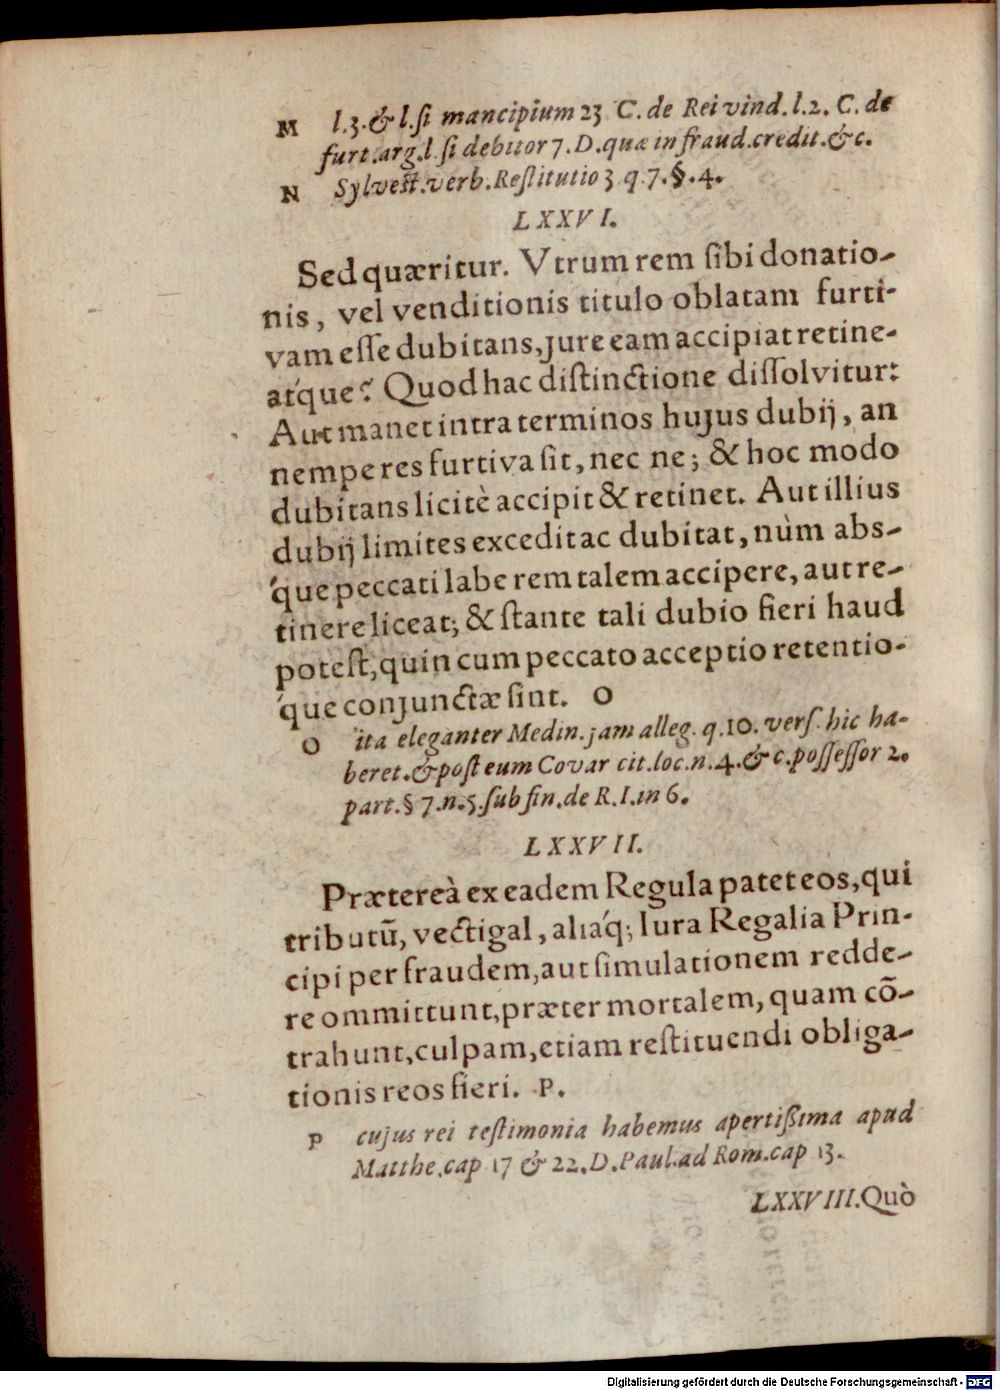 M l.3.& l.si mancipium 23 C. de Rei vind. l.2. C. de
furt.arg.l si debitor 7. D.quæ in fraud.credit.&c.
N Sylvest.verb.Restitutio 3 q.7.§.4.
LXXVI.
Sed quæritur. Vtrum rem sibi donatio-
nis, vel venditionis titulo oblatam furti-
vam esse dubitans, jure eam accipiat retine-
at'que? Quod hac distinctione dissolvitur:
Aut manet intra terminos hujus dubij, an
nempe res furtiva sit, nec ne; & hoc modo
dubitans licitè accipit & retinet. Aut illius
dubij limites excedit ac dubitat, nùm abs-
'que peccati labe rem talem accipere, aut re-
tinere liceat; & stante tali dubio fieri haud
potest, quin cum peccato acceptio retentio-
'que conjunctæ sint. O
O ita eleganter Medin. jam alleg. q.10. vers. hic ha-
beret.& post eum Covar cit.loc.n.4.& c.possessor 2.
part.§ 7.n.5.sub fin.de R.I.in 6.
LXXVII.
Prætereà ex eadem Regula patet eos, qui
tributū, vectigal, aliaq́; Iura Regalia Prin-
cipi per fraudem, aut simulationem redde-
re ommittunt, præter mortalem, quam cō-
trahunt, culpam, etiam restituendi obliga-
tionis reos fieri. P.
P cujus rei testimonia habemus apertißima apud
Matthe.cap 17 & 22.D.Paul.ad Rom.cap 13.
LXXVIII.Quò
Digitalisierung gefördert durch die Deutsche Forschungsgemeinschaft - DFG